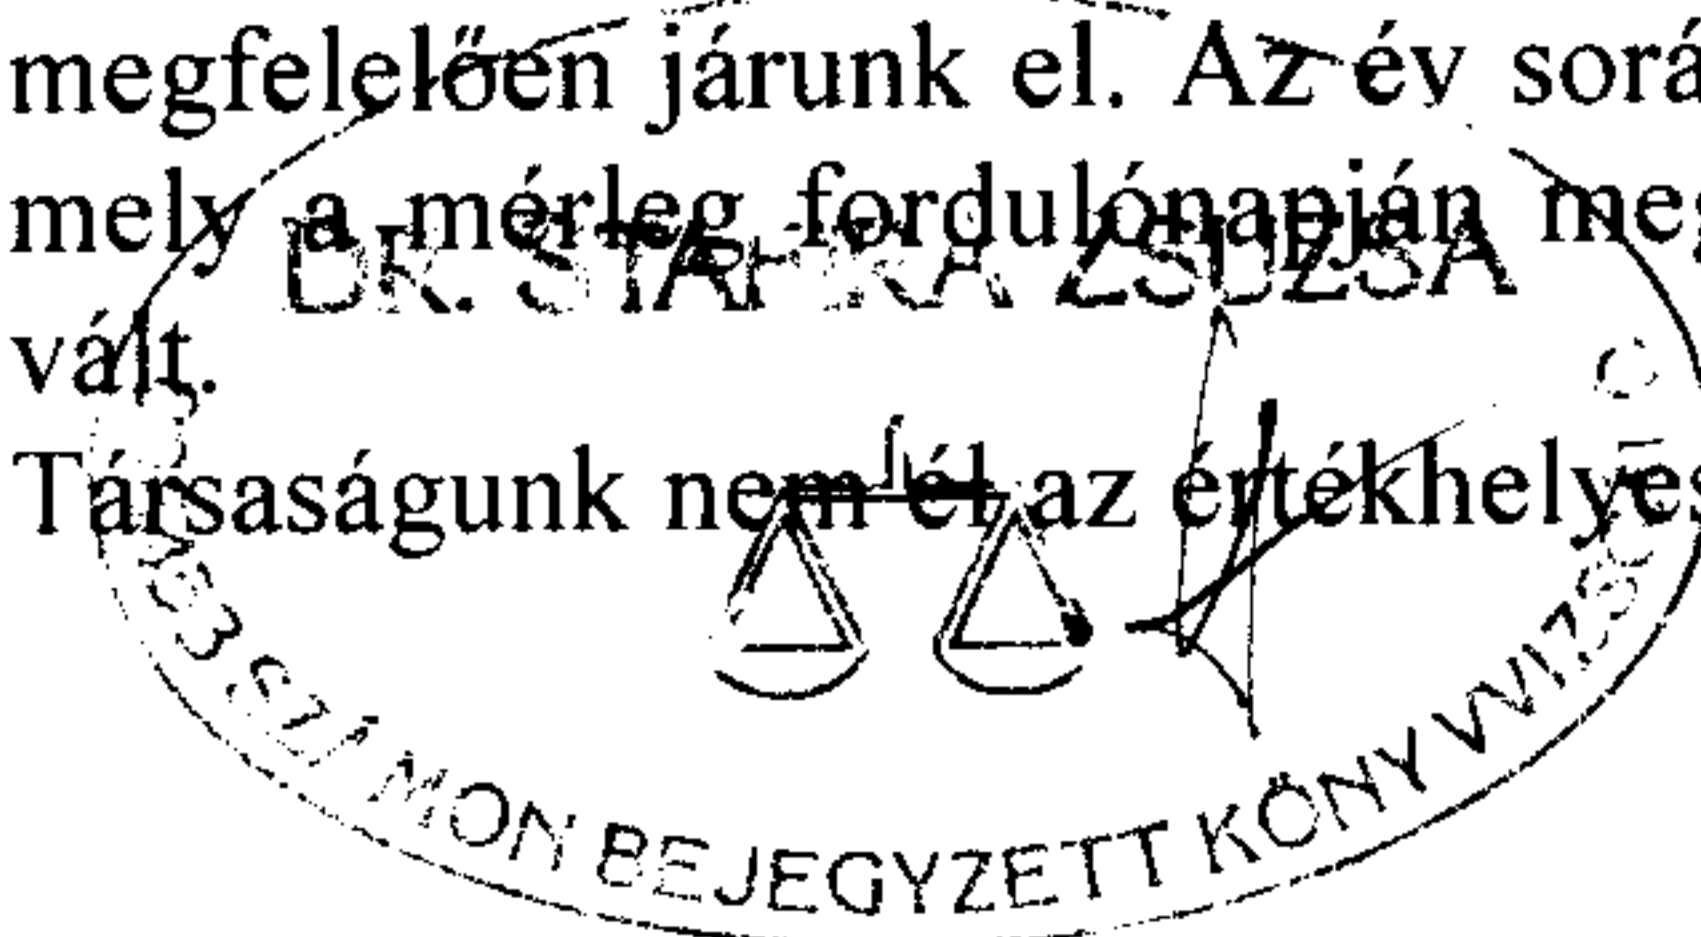 megfelelően járunk el. Az év sorá
mely a mérleg fordulónapján meg
DR. ZSUZSA
vált.
Társaságunk nem él az értékhelyes
SZÁMON BEJEGYZETT KÖNYVVIZSG